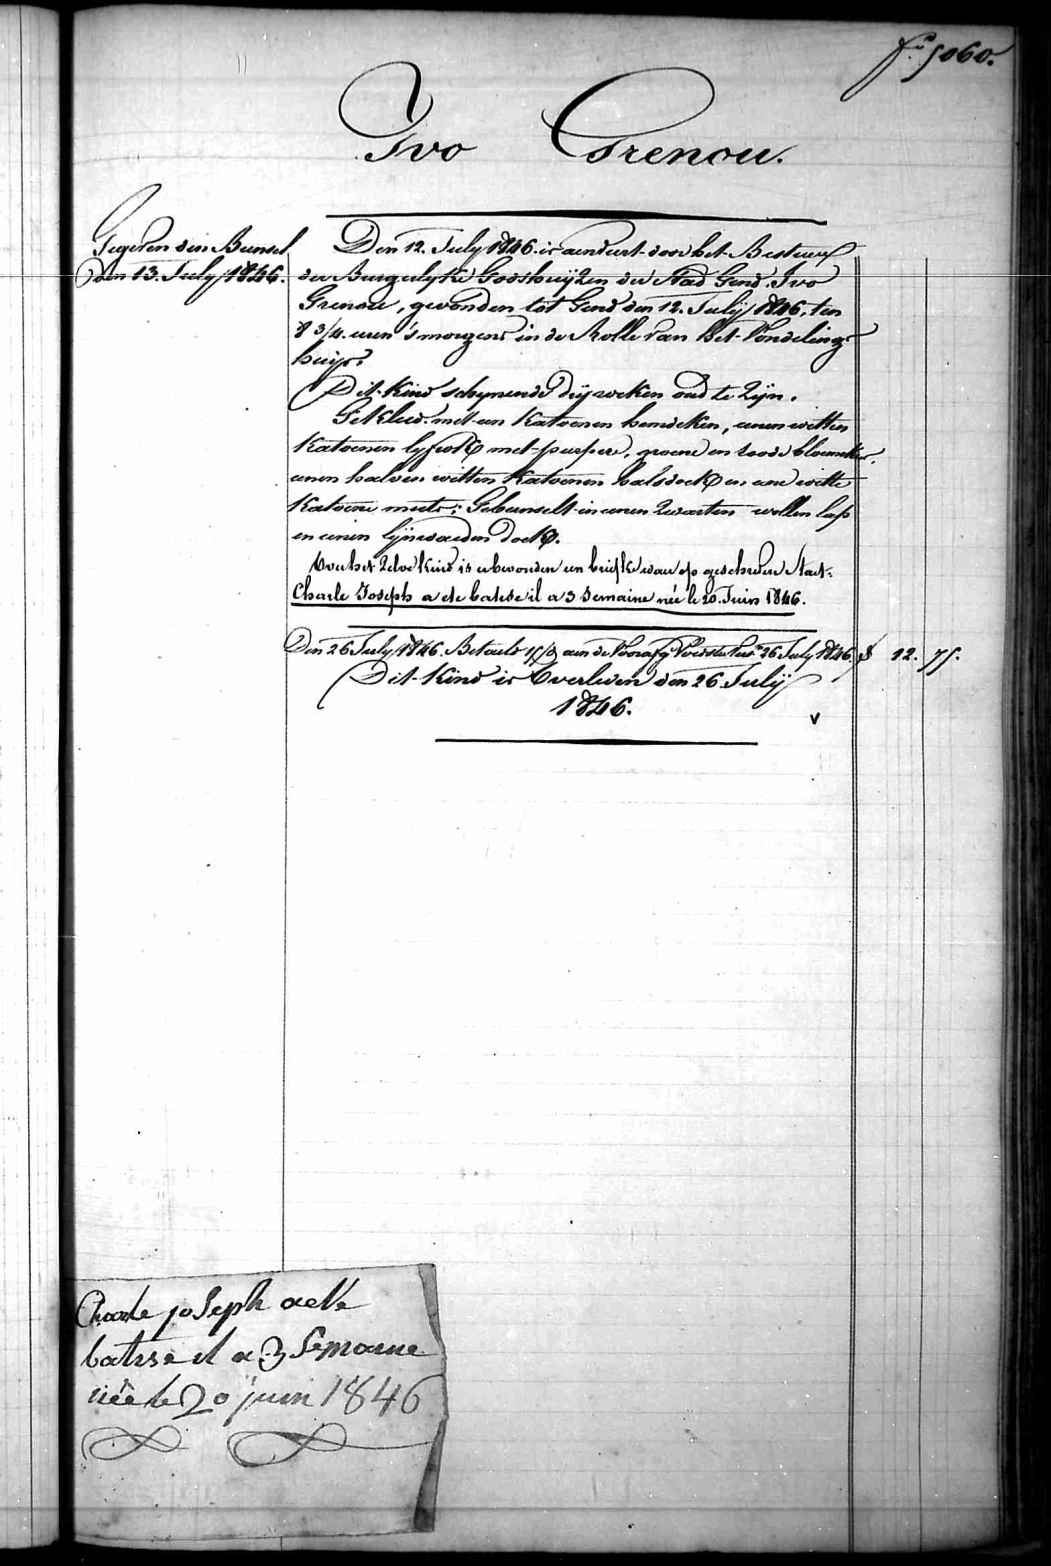 fo. 5060.
Ivo Grenou.
Gegeven din Bunsel
den 13. July 1846.
Den 12. July 1846. is aenveert door het Bestuur
der Burgerlyke Godshuijzen der Stad Gend. Ivo
Grenou, gevonden tot Gend den 12. July 1846, ten
8 3/4 uren 's morgens in de Rolle van het Vondeling-
huijs.
Dit kind schynende drij weken oud te zijn.
Gekleed met een katoenen hemdeken, eenen witten
katoenen lyfrok met purpere, groene en roode bloemekes,
eenen halven witten katoenen halsdoek en eene witte
katoene muts; Gebunselt in eenen zwarten wollen lap
en eenen lijnwaeden doek.
Over het zelve kind is gevonden een briefke waer op geschreven staet:
Charle Joseph a ete batise il a 3 Semaine née le 20 Juin 1846.
Den 26 July 1846. Betaelt aen de 26 July 1846 12. 75.
Dit kind is Overleden den 26 July
1846.
v
Charle joseph aete
batise il a 3 Semaine
née le 20 juin 1846